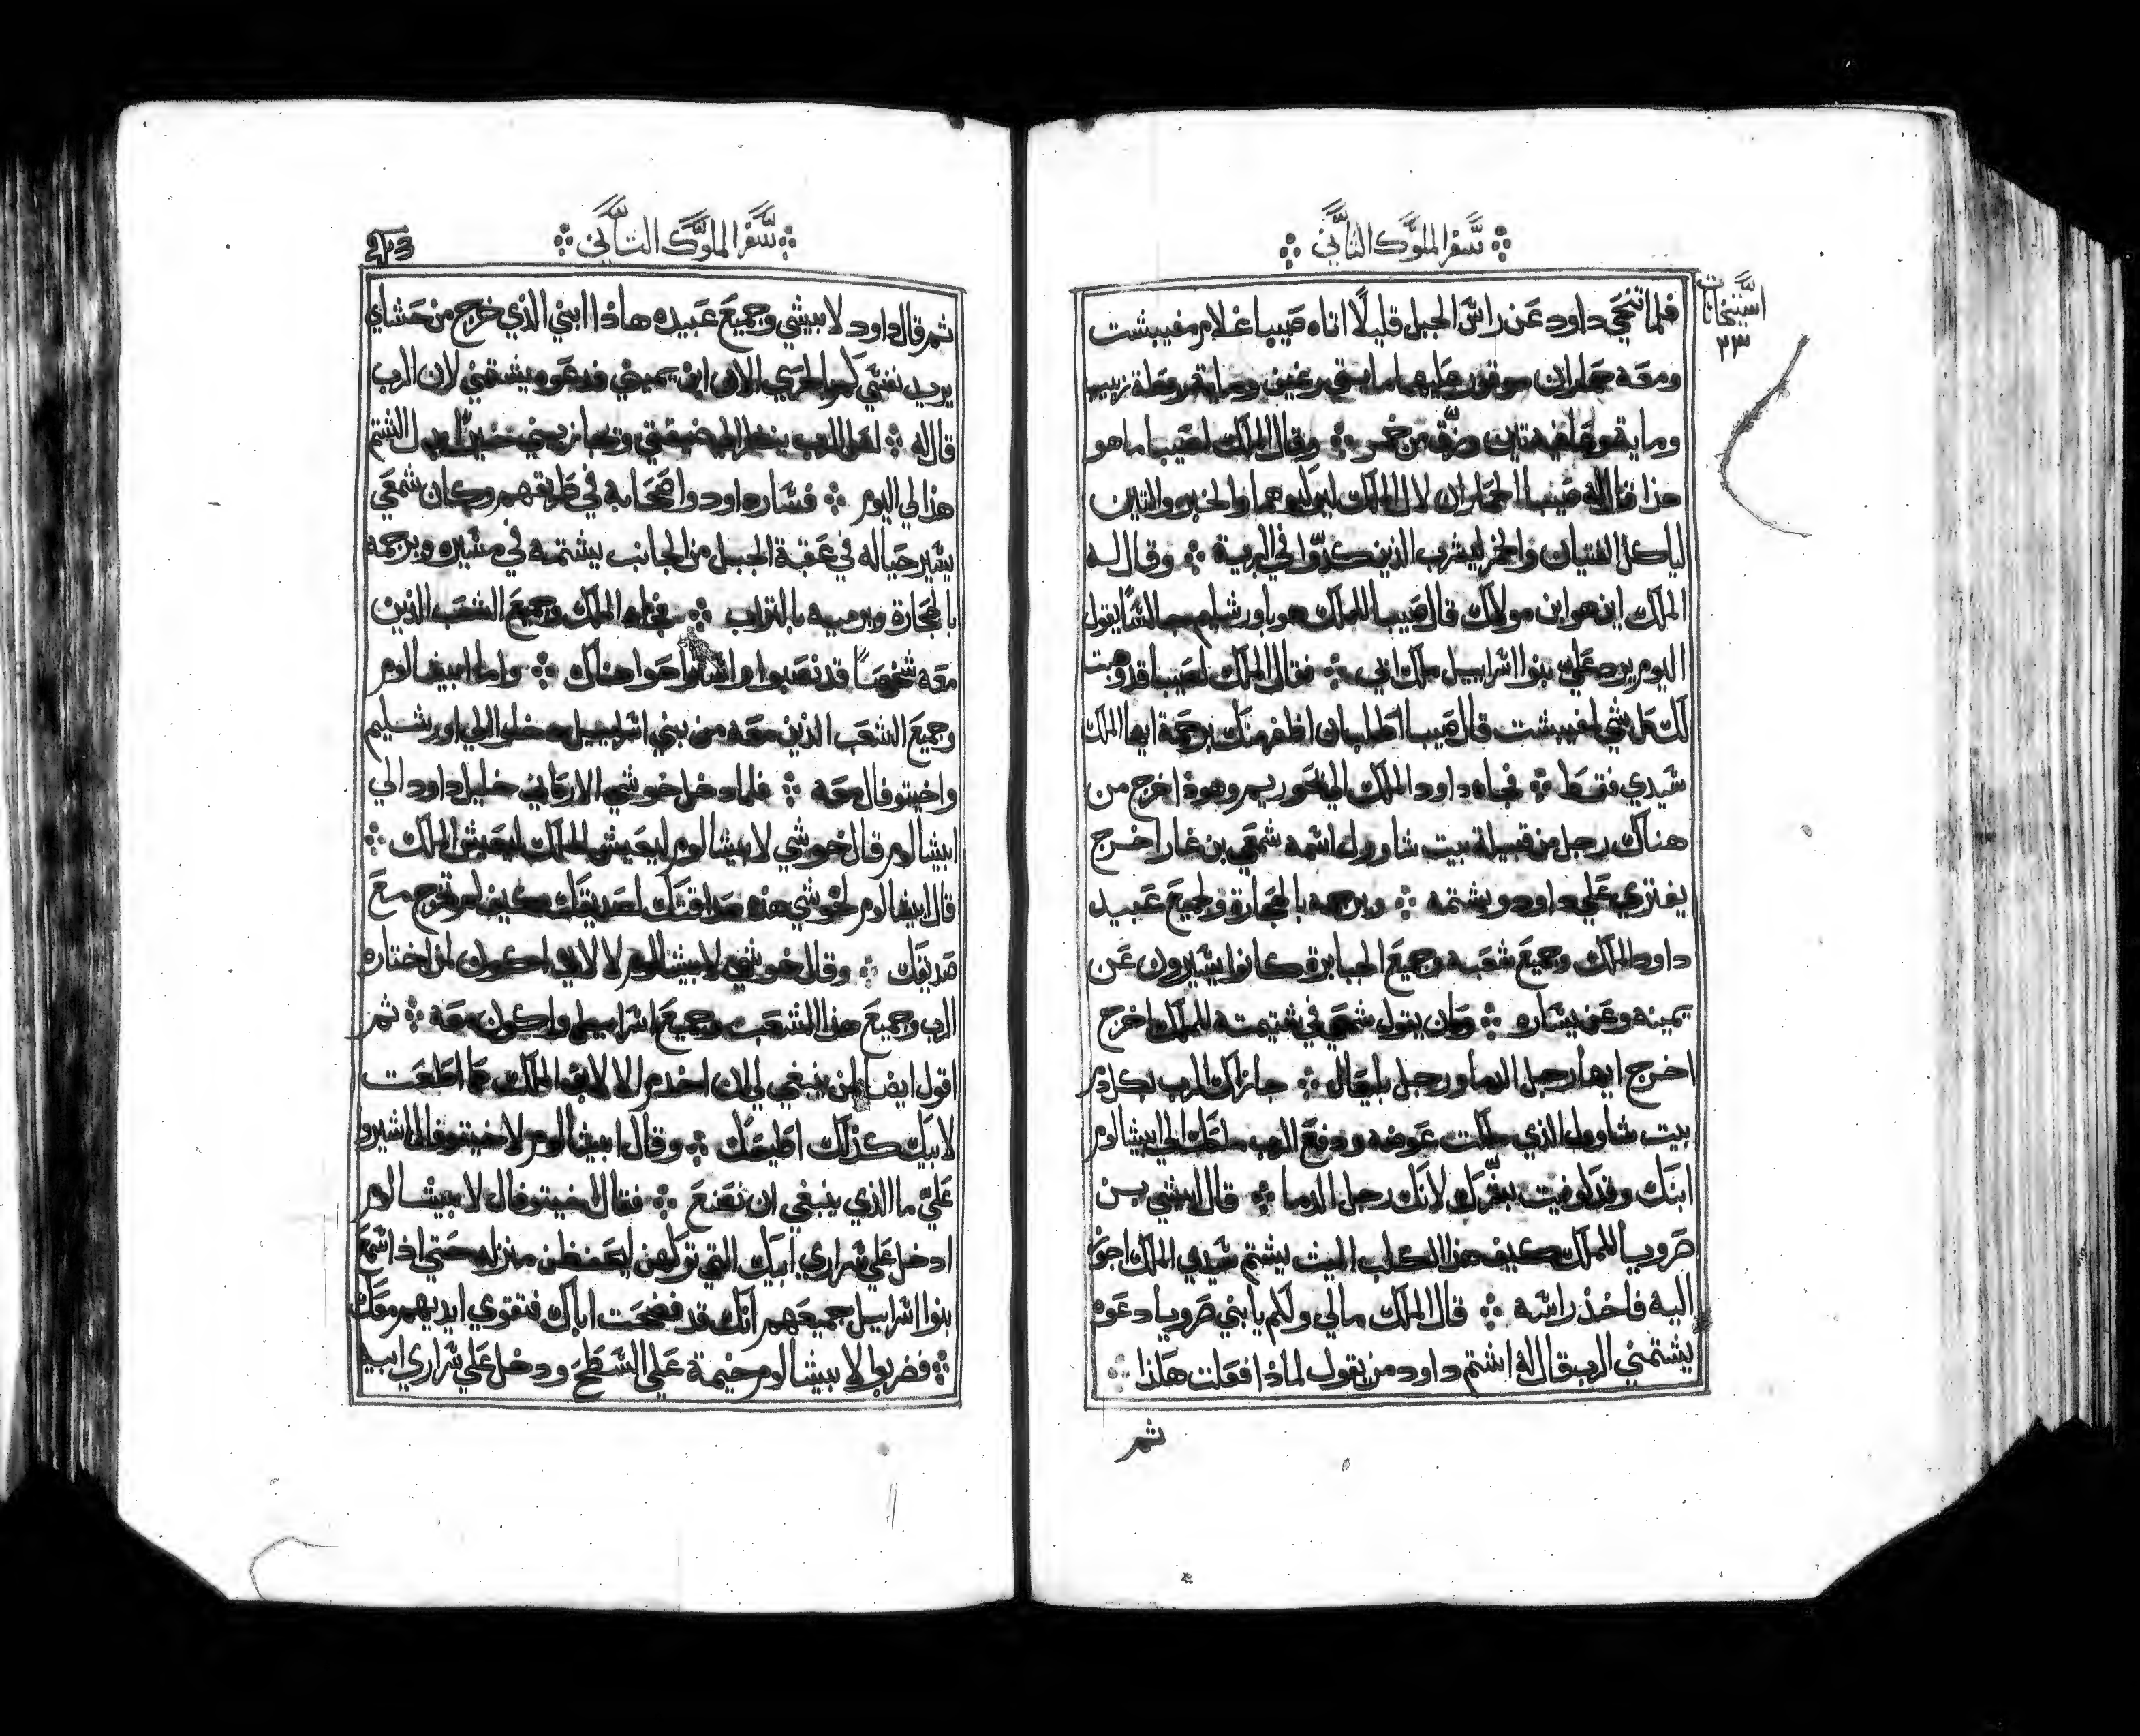 سفر الملوك الثاني
استنجانات
٢٣
فلما تنحي داود عن راس الجبل قليلًا اتاه صيبا غلام مفيبشت
ومعه حماران موقوران عليهما مايتي رغيف وماية رطلة زبيب
وماية تين وزق من خمر وقال الملك لصيبا ما هو
هذا قال له صيبا الحماران لال الملك ليركبوهما والخبز والتين
لياكل الفتيان والخمر ليشرب الذين كدوا في البرية وقال له
الملك اين هو ابن مولاك قال صيبا للملك هو باورشليم جالسًا يقول
اليوم يرد علي بنوا اسراييل ملك ابي فقال الملك لصيبا قد وهبت
لك كل شي لمفيبشت قال صيبا اطلب ان اظفر منك برحمة ايها الملك
سيدي فقط فجاه داود الملك الي نحوريم وهوذا خرج من
هناك رجل من قبيلة بيت شاوول اسمه شمعي بن غارا خرج
يفتري علي داود ويشتمه ويرجمه بالحجارة وجميع عبيد
داود الملك وجميع شعبه وجميع الجبابرة كانوا يسيرون عن
يمينه وعن يساره وكان يقول شمعي في شتيمته للملك اخرج
اخرج ايها رجل الدما ورجل بليعال جازاك الرب بكل دم
بيت شاوول الذي ملكت عوضه ودفع الرب ملكك الي ابيشالوم
ابنك وقد لوفيت بشرك لانك رجل الدما قال ابيشي بن
صرويا للملك كيف هذا الكلب الميت يشتم سيدي الملك اجوز
اليه فاخذ راسه قال الملك مالي ولكم يا بني صرويا دعوه
يشتمني الرب قال له اشتم داود من يقول لماذا فعلت هكذا
ثم
سفر الملوك الثاني
243
ثم قال داود لابيشي وجميع عبيده هاذا ابني الذي خرج من حشاي
يريد نفسي كم بالحري الان ابن يميني فدعوه يشتمني لان الرب
قال له لعل الرب ينظر الي ضيقتي ويجازيني خيرًا بدل الشتم
هذا لي اليوم فسار داود واصحابه في طريقهم وكان شمعي
يسير حياله في عقبة الجبل من الجانب يشتمه في مسيره ويرجمه
بالحجارة ويرميه بالتراب فجاه الملك وجميع الشعب الذين
معه شخصًا قد نصبوا واستراحوا هناك واما ابيشالوم
وجميع الشعب الذين معه من بني اسراييل دخلوا الي اورشليم
واخيتوفال معه فلما دخل خوشي الارقاني خليل داود الي
ابيشالوم قال خوشي لابيشالوم ليعيش الملك ليعيش الملك
قال ابيشالوم لخوشي هذه صداقتك لصديقك كيف لم تخرج مع
صديقك وقال خوشي لابيشالوم لا لاني اكون لمن اختاره
الرب وجميع هذا الشعب وجميع اسراييل واكون معه ثم
اقول ايضا لمن ينبغي لي ان اخدم الا لابن الملك كما اطعت
لابيك كذلك اطيعك وقال ابيشالوم لاخيتوفال اشيرو
علي ما الذي ينبغي ان نصنع فقال اخيتوفال لابيشالوم
ادخل علي سراري ابيك التي تركهن ليحفظن منزله حتي اذا سمع
بنوا اسراييل جميعهم انك قد فضحت اباك فتقوي ايديهم معك
فضربوا لابيشالوم خيمة علي السطح ودخل علي سراري ابيه